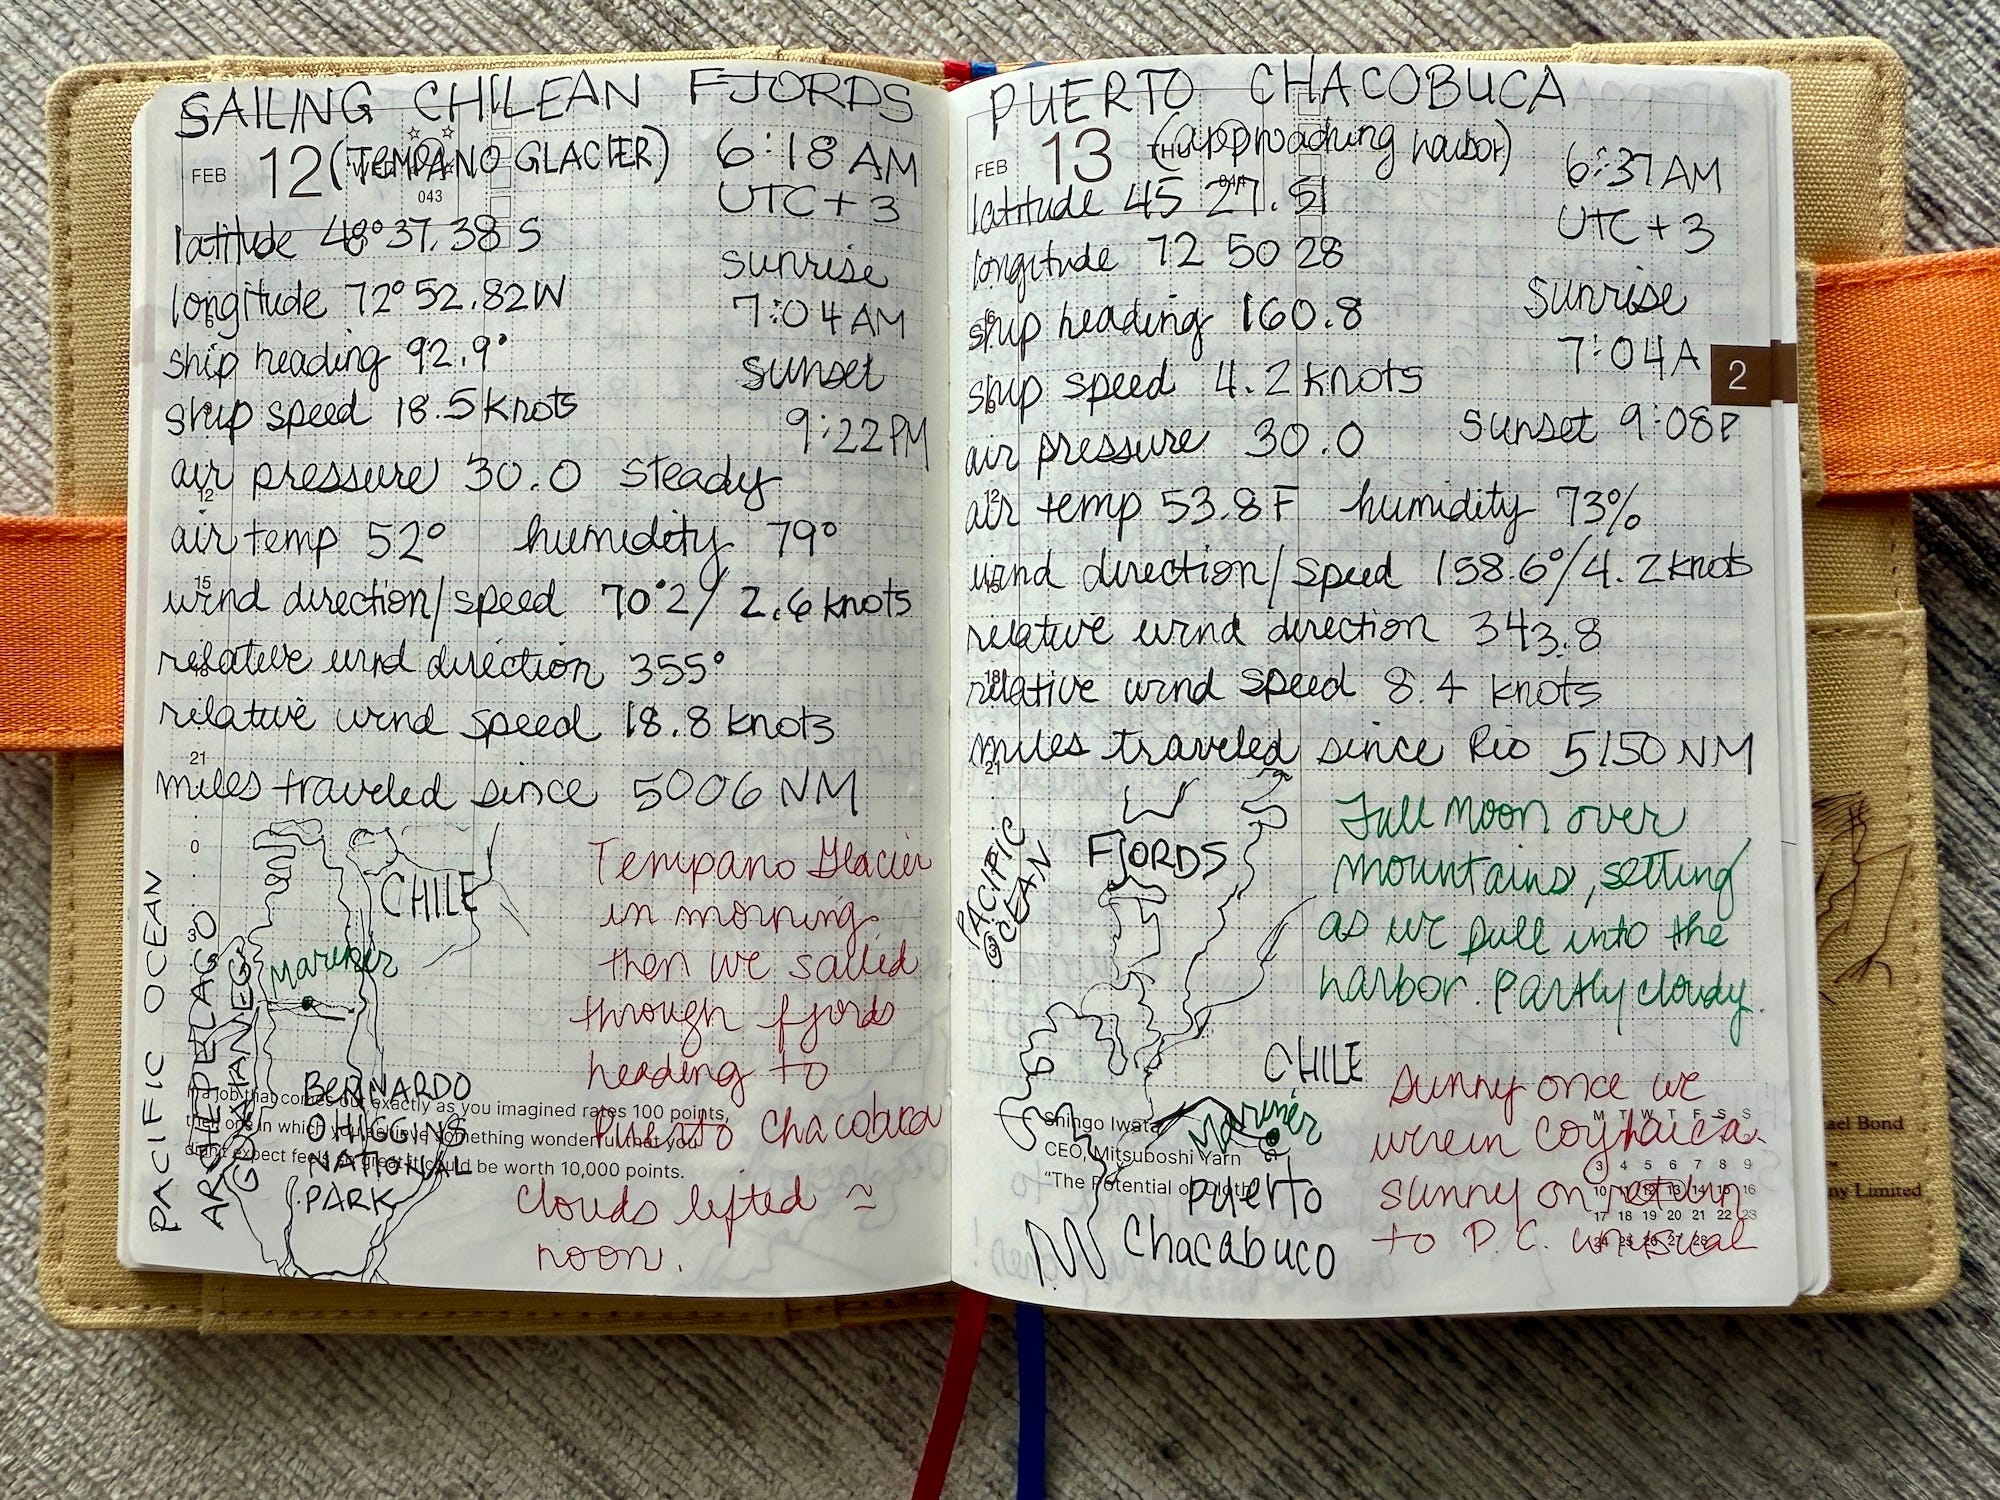 SAILING CHILEAN FJORDS
FEB 12 (TEMPANO GLACIER) 6:18 AM
043
UTC + 3
latitude 48°37.38 S
sunrise
longitude 72°52.82W
7:04 AM
ship heading 92.9°
sunset
ship speed 18.5 knots
9:22 PM
air pressure 30.0 steady
12
air temp 52° humidity 79°
15
wind direction/speed 70°2/ 2.6 knots
relative wind direction 355°
18
relative wind speed 18.8 knots
21
miles traveled since 5006 NM
0
3
PACIFIC OCEAN
ARCHIPELAGO
CHILE
Mariner
BERNARDO
OHIGGINS
NATIONAL
PARK
Tempano Glacier
in morning
then we sailed
through fjords
heading to
Puerto
clouds lifted ≈
noon.
a job that comes out exactly as you imagined rates 100 points,
then one in which you achieve something wonderful that you
didn't expect feels so great it could be worth 10,000 points.
PUERTO CHACOBUCA
FEB 13 (approaching harbor) 6:37 AM
latitude 45 27.51
UTC + 3
longitude 72 50 28
sunrise
ship heading 160.8
7:04A
2
ship speed 4.2 knots
air pressure 30.0 sunset 9:08P
12
air temp 53.8F humidity 73%
15
wind direction/speed 158.6°/4.2 knots
relative wind direction 343.8
18
relative wind speed 8.4 knots
miles traveled since Rio 5150 NM
21
PACIFIC
OCEAN
FJORDS
CHILE
Mariner
Puerto
Chacabuco
Full moon over
mountains, setting
as we pull into the
harbor. Partly cloudy.
Sunny once we
were in Coyhaica.
sunny on return
to P.C. unusual
Shingo Iwata
CEO, Mitsuboshi Yarn
"The Potential of
M T W T F S S
3 4 5 6 7 8 9
10 11 12 13 14 15 16
17 18 19 20 21 22 23
24 25 26 27 28
Bond
Limited